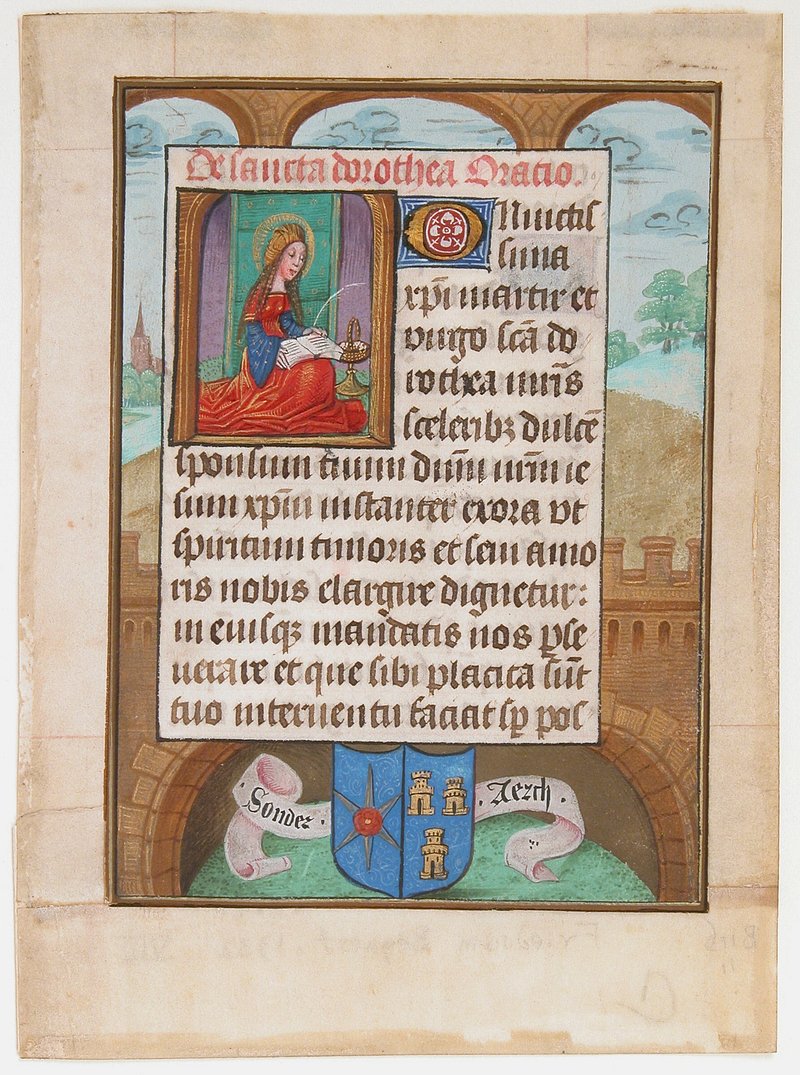 De sancta dorothea Oratio.
O Inuictis
sima
xp̄i martir et
virgo scā do
rothea nr̄is
sceleribꝫ dulcē
sponsum tuum dn̄m nr̄m ie
sum xp̄m instanter exora vt
spiritum timoris et sem amo
ris nobis elargire dignetur:
in eiusqꝫ mandatis nos ꝑse
uerare et que sibi placita sūt
tuo interuentu faciat sꝑ pos
Sondez · Aezch ·